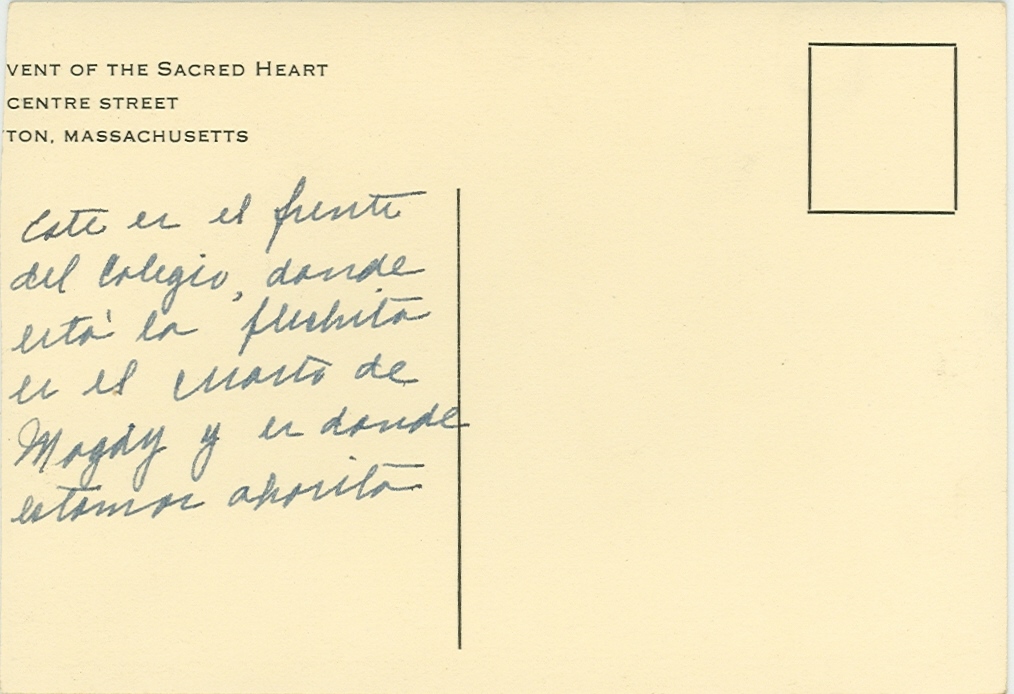 VENT OF THE SACRED HEART
CENTRE STREET
TON, MASSACHUSETTS
Este es el frente
del Colegio, donde
está la flechita
es el cuarto de
Magdy y es donde
estamos ahorita